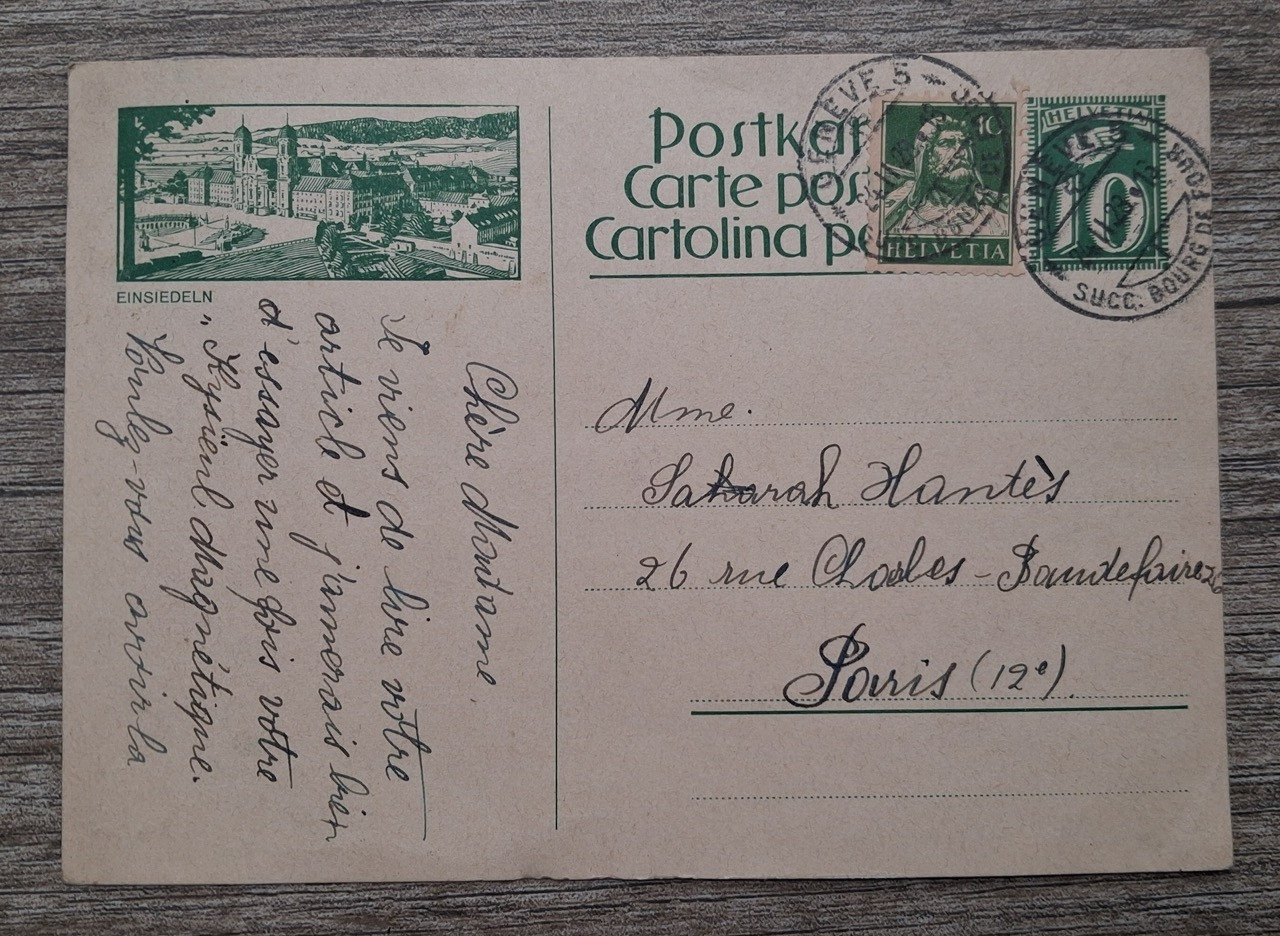 EINSIEDELN
Chère Madame,
Je viens de lire votre
article et j'aimerais bien
d'essayer une fois votre
"Kysienl. Magnétique.
Voulez-vous avoir la
Postkar
Carte pos
Cartolina po
10
HELVETIA
HELVETIA
10
GENÈVE 5
SUCC. BOURG DE FOUR
Mme.
Sarah Hantès
26 rue Charles-Baudefaire 26
Paris (12e).